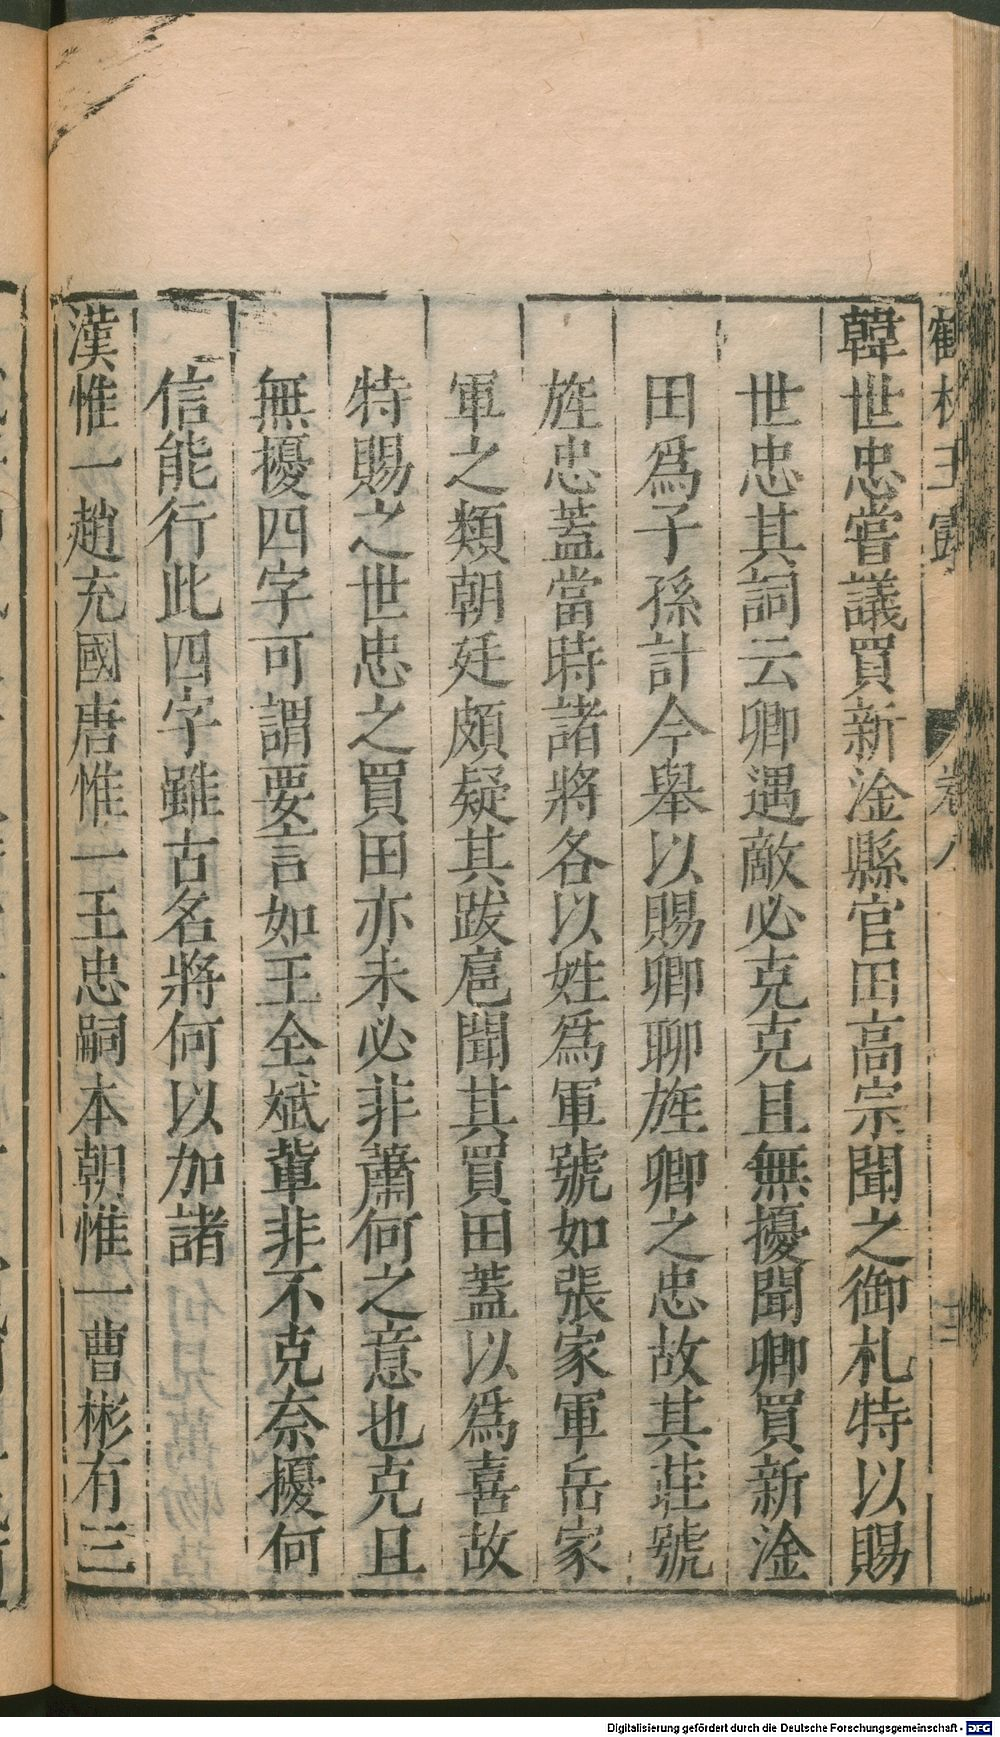 鶴林玉露
卷八
韓世忠嘗議買新淦縣官田高宗聞之御札特以賜
世忠其詞云卿遇敵必克克且無擾聞卿買新淦
田爲子孫計今舉以賜卿聊旌卿之忠故其莊號
旌忠蓋當時諸將各以姓爲軍號如張家軍岳家
軍之類朝廷頗疑其跋扈聞其買田蓋以爲喜故
特賜之世忠之買田亦未必非蕭何之意也克且
無擾四字可謂要言如王全斌輩非不克奈擾何
信能行此四字雖古名將何以加諸
漢惟一趙充國唐惟一王忠嗣本朝惟一曹彬有三
Digitalisierung gefördert durch die Deutsche Forschungsgemeinschaft - DFG